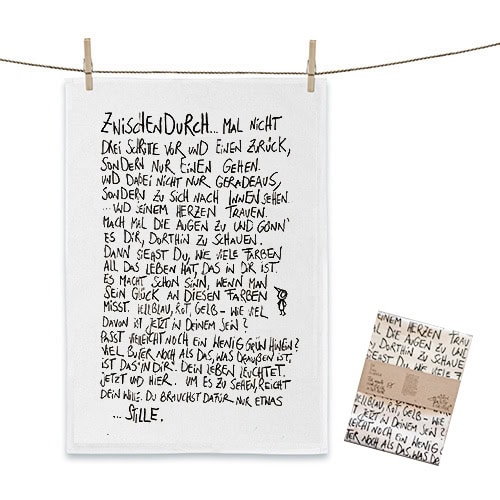 ZWISCHENDURCH... MAL NICHT
DREI SCHRITTE VOR UND EINEN ZURÜCK,
SONDERN NUR EINEN GEHEN.
UND DABEI NICHT NUR GERADEAUS,
SONDERN ZU SICH NACH INNEN SEHEN.
...UND SEINEM HERZEN TRAUEN.
MACH MAL DIE AUGEN ZU UND GÖNN'
ES DIR, DORTHIN ZU SCHAUEN.
DANN SIEHST DU, WIE VIELE FARBEN
ALL DAS LEBEN HAT, DAS IN DIR IST.
ES MACHT SCHON SINN, WENN MAN
SEIN GLÜCK AN DIESEN FARBEN
MISST. HELLBLAU, ROT, GELB - WIE VIEL
DAVON IST JETZT IN DEINEM SEIN?
PASST VIELLEICHT NOCH EIN WENIG GRÜN HINEIN?
VIEL BUNTER NOCH ALS DAS, WAS DRAUẞEN IST,
IST DAS "IN DIR". DEIN LEBEN LEUCHTET.
JETZT UND HIER. UM ES ZU SEHEN, REICHT
DEIN WILLE. DU BRAUCHST DAFÜR NUR ETWAS
... STILLE.
EINEM HERZEN TRAU
MAL DIE AUGEN ZU UND
, DORTHIN ZU SCHAUE
SIEHST DU, WIE VIELE
HELLBLAU, ROT, GELB - W
T JETZT IN DEINEM SEIN?
LEICHT NOCH EIN WENIG G
TER NOCH ALS DAS, WAS DRA